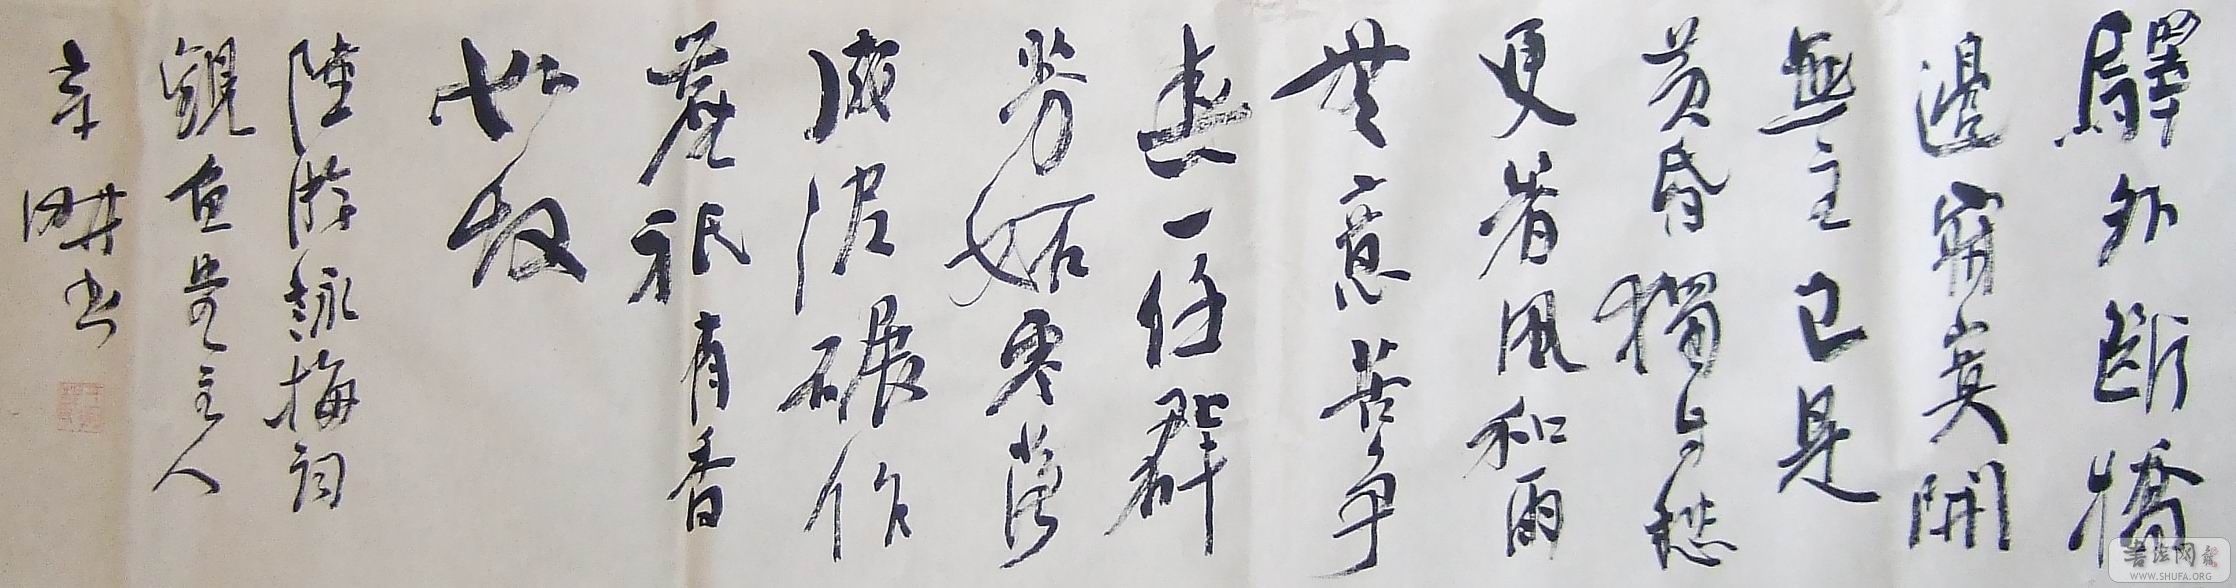 驛外斷橋
邊寂寞開
無主已是
黄昏獨自愁
更著風和雨
無意苦爭
春一任群
芳妬零落
成泥碾作
塵祇有香
如故
陸游詠梅詞
觀魚齋主人
辛耕书
書法网
WWW.SHUFA.ORG